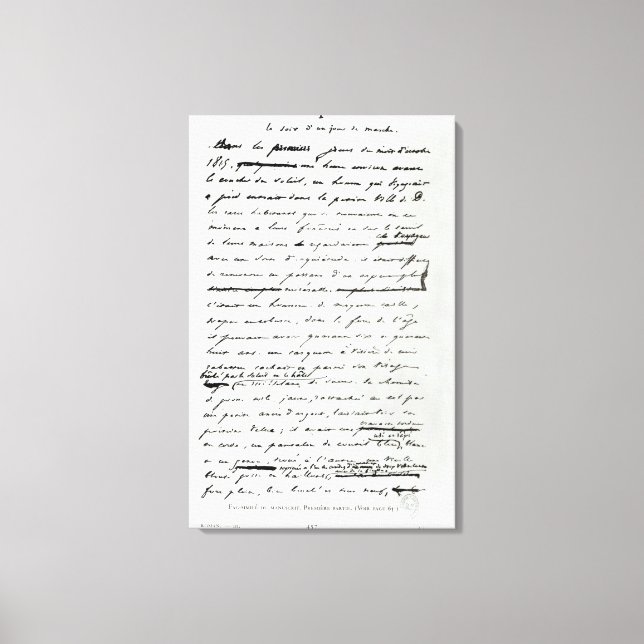 le soir d'un jour de marche.
Dans les premiers jours du mois d'octobre
1815, une heure environ avant
le coucher du soleil, un homme qui voyageait
à pied entrait dans la petite ville de D.
les rares habitants qui se trouvaient en ce
moment à leurs fenêtres ou sur le seuil
de leurs maisons regardaient ce voyageur
avec une sorte d'inquiétude. il était difficile
de rencontrer un passant d'un aspect plus
misérable.
c'était un homme de moyenne taille,
trapu et robuste, dans la force de l'âge
il pouvait avoir quarante six ou quarante
huit ans. une casquette à visière de cuir
rabattue cachait en partie son visage
brûlé par le soleil et le hâle
et ruisselant de sueur. sa chemise
de grosse toile jaune, rattachée au col par
une petite ancre d'argent, laissait voir sa
poitrine velue; il avait une
cravate tordue
en corde, un pantalon de coutil bleu,
usé et râpé
blanc
à un genou, troué à l'autre, une vieille
blouse grise en haillons,
fort plein, bien bouclé et tout neuf,
FAC-SIMILÉ DU MANUSCRIT. PREMIÈRE PARTIE. (VOIR PAGE 65.)
ROMAN. 457